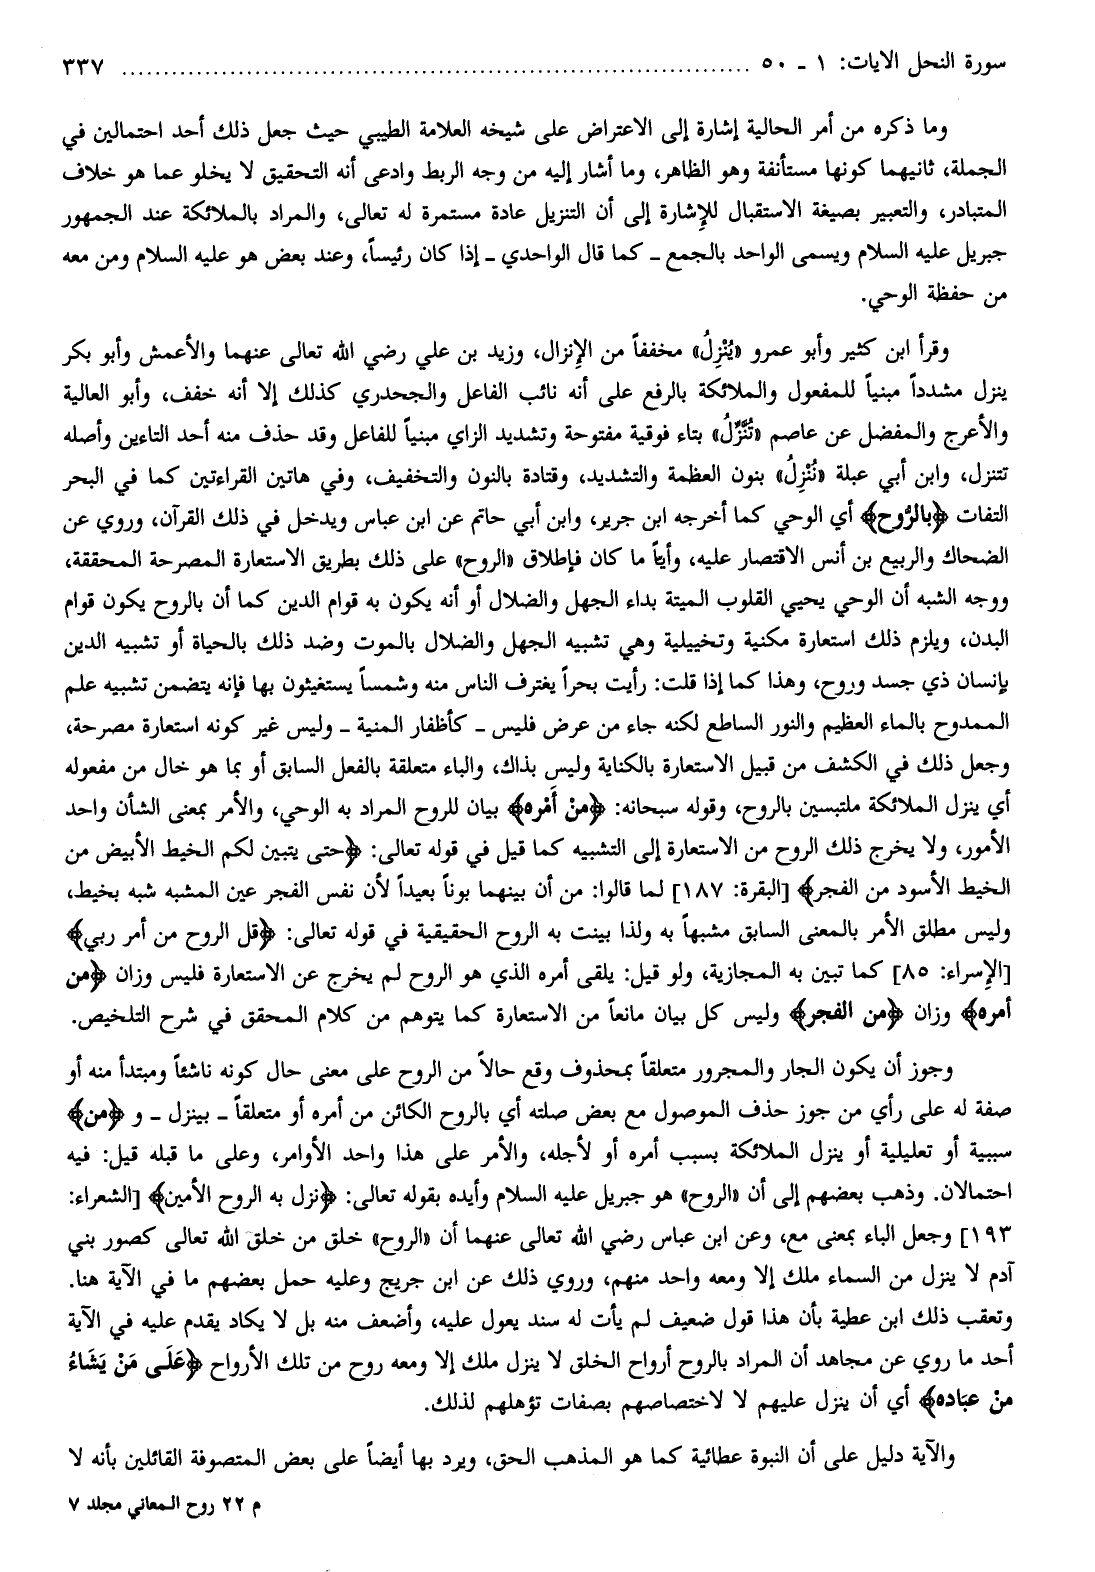 سورة النحل الايات: ١ ـ ٥٠ ........................................................................ ٣٣٧
وما ذكره من أمر الحالية إشارة إلى الاعتراض على شيخه العلامة الطيبي حيث جعل ذلك أحد احتمالين في
الجملة، ثانيهما كونها مستأنفة وهو الظاهر، وما أشار إليه من وجه الربط وادعى أنه التحقيق لا يخلو عما هو خلاف
المتبادر، والتعبير بصيغة الاستقبال للإشارة إلى أن التنزيل عادة مستمرة له تعالى، والمراد بالملائكة عند الجمهور
جبريل عليه السلام ويسمى الواحد بالجمع ـ كما قال الواحدي ـ إذا كان رئيساً، وعند بعض هو عليه السلام ومن معه
من حفظة الوحي.
وقرأ ابن كثير وأبو عمرو «يُنْزِلُ» مخففاً من الإنزال، وزيد بن علي رضي الله تعالى عنهما والأعمش وأبو بكر
ينزل مشدداً مبنياً للمفعول والملائكة بالرفع على أنه نائب الفاعل والجحدري كذلك إلا أنه خفف، وأبو العالية
والأعرج والمفضل عن عاصم «تُنَّزِّلُ» بتاء فوقية مفتوحة وتشديد الزاي مبنياً للفاعل وقد حذف منه أحد التاءين وأصله
تتنزل، وابن أبي عبلة «نُنْزِلُ» بنون العظمة والتشديد، وقتادة بالنون والتخفيف، وفي هاتين القراءتين كما في البحر
التفات ﴿بالرُّوح﴾ أي الوحي كما أخرجه ابن جرير، وابن أبي حاتم عن ابن عباس ويدخل في ذلك القرآن، وروي عن
الضحاك والربيع بن أنس الاقتصار عليه، وأيّاً ما كان فإطلاق «الروح» على ذلك بطريق الاستعارة المصرحة المحققة،
ووجه الشبه أن الوحي يحيي القلوب الميتة بداء الجهل والضلال أو أنه يكون به قوام الدين كما أن بالروح يكون قوام
البدن، ويلزم ذلك استعارة مكنية وتخييلية وهي تشبيه الجهل والضلال بالموت وضد ذلك بالحياة أو تشبيه الدين
بإنسان ذي جسد وروح، وهذا كما إذا قلت: رأيت بحراً يغترف الناس منه وشمساً يستغيثون بها فإنه يتضمن تشبيه علم
الممدوح بالماء العظيم والنور الساطع لكنه جاء من عرض فليس ـ كأظفار المنية ـ وليس غير كونه استعارة مصرحة،
وجعل ذلك في الكشف من قبيل الاستعارة بالكناية وليس بذاك، والباء متعلقة بالفعل السابق أو بما هو خال من مفعوله
أي ينزل الملائكة ملتبسين بالروح، وقوله سبحانه: ﴿منْ أَمْره﴾ بيان للروح المراد به الوحي، والأمر بمعنى الشأن واحد
الأمور، ولا يخرج ذلك الروح من الاستعارة إلى التشبيه كما قيل في قوله تعالى: ﴿حتى يتبين لكم الخيط الأبيض من
الخيط الأسود من الفجر﴾ [البقرة: ١٨٧] لما قالوا: من أن بينهما بوناً بعيداً لأن نفس الفجر عين المشبه شبه بخيط،
وليس مطلق الأمر بالمعنى السابق مشبهاً به ولذا بينت به الروح الحقيقية في قوله تعالى: ﴿قل الروح من أمر ربي﴾
[الإسراء: ٨٥] كما تبين به المجازية، ولو قيل: يلقى أمره الذي هو الروح لم يخرج عن الاستعارة فليس وزان ﴿من
أمره﴾ وزان ﴿من الفجر﴾ وليس كل بيان مانعاً من الاستعارة كما يتوهم من كلام المحقق في شرح التلخيص.
وجوز أن يكون الجار والمجرور متعلقاً بمحذوف وقع حالاً من الروح على معنى حال كونه ناشئاً ومبتدأ منه أو
صفة له على رأي من جوز حذف الموصول مع بعض صلته أي بالروح الكائن من أمره أو متعلقاً ـ بينزل ـ و ﴿من﴾
سببية أو تعليلية أو ينزل الملائكة بسبب أمره أو لأجله، والأمر على هذا واحد الأوامر، وعلى ما قبله قيل: فيه
احتمالان. وذهب بعضهم إلى أن «الروح» هو جبريل عليه السلام وأيده بقوله تعالى: ﴿نزل به الروح الأمين﴾ [الشعراء:
١٩٣] وجعل الباء بمعنى مع، وعن ابن عباس رضي الله تعالى عنهما أن «الروح» خلق من خلق الله تعالى كصور بني
آدم لا ينزل من السماء ملك إلا ومعه واحد منهم، وروي ذلك عن ابن جريج وعليه حمل بعضهم ما في الآية هنا.
وتعقب ذلك ابن عطية بأن هذا قول ضعيف لم يأت له سند يعول عليه، وأضعف منه بل لا يكاد يقدم عليه في الآية
أحد ما روي عن مجاهد أن المراد بالروح أرواح الخلق لا ينزل ملك إلا ومعه روح من تلك الأرواح ﴿عَلَى مَنْ يَشَاءُ
منْ عبَاده﴾ أي أن ينزل عليهم لا لاختصاصهم بصفات تؤهلهم لذلك.
والآية دليل على أن النبوة عطائية كما هو المذهب الحق، ويرد بها أيضاً على بعض المتصوفة القائلين بأنه لا
م ٢٢ روح المعاني مجلد ٧